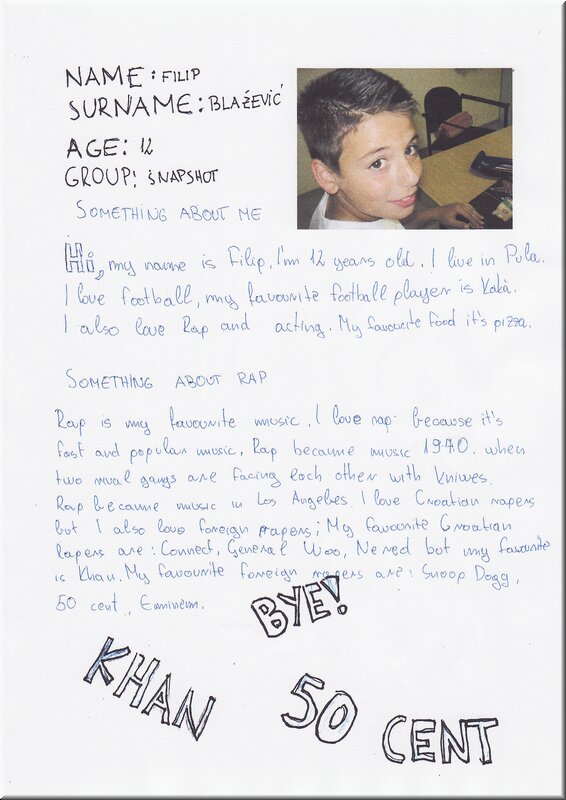 NAME: FILIP
SURNAME: BLAŽEVIĆ
AGE: 12
GROUP: SNAPSHOT
SOMETHING ABOUT ME
Hi, my name is Filip. I'm 12 years old. I live in Pula.
I love football, my favourite football player is Kakà.
I also love Rap and acting. My favourite food it's pizza.
SOMETHING ABOUT RAP
Rap is my favourite music. I love rap because it's
fast and popular music. Rap became music 1970. when
two rival gangs are facing each other with knives.
Rap became music in Los Angeles. I love Croatian rapers
but I also love foreign rapers; My favourite Croatian
Rapers are: Connect, General Woo, Nered but my favourite
is Khan. My favourite foreign rapers are: Snoop Dogg,
50 cent, Eminem.
BYE!
KHAN
50 CENT